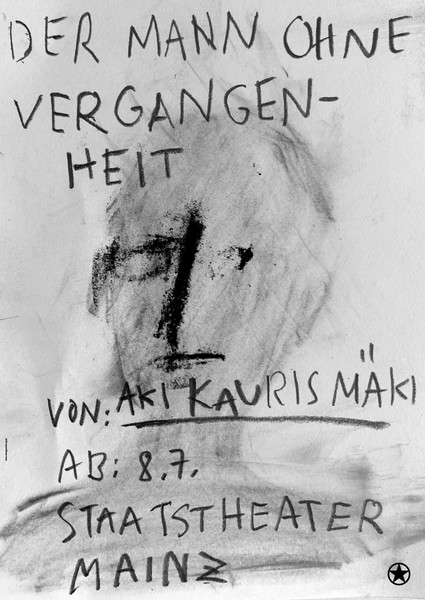 DER MANN OHNE
VERGANGEN-
HEIT
VON: AKI KAURISMÄKI
AB: 8.7.
STAATSTHEATER
MAINZ